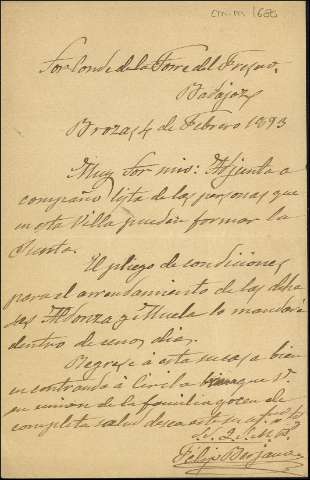 cm-m 1606
Sor Conde de la Torre del Fresno.
Badajoz
Brozas 4 de Febrero 1893
Muy Sor mio: Adjunta a
compaño lista de las personas que
en esta Villa pueden formar la
Junta.
El pliego de condiciones
para el arrendamiento de las dehe
sas Alonza y Muela lo mandaré
dentro de unos dias.
Regresé á esta su casa bien
encontrando á Cirila y que V.
en union de la familia gocen de
completa salud desea este su
q. b. s. m.
Felipe Barjano